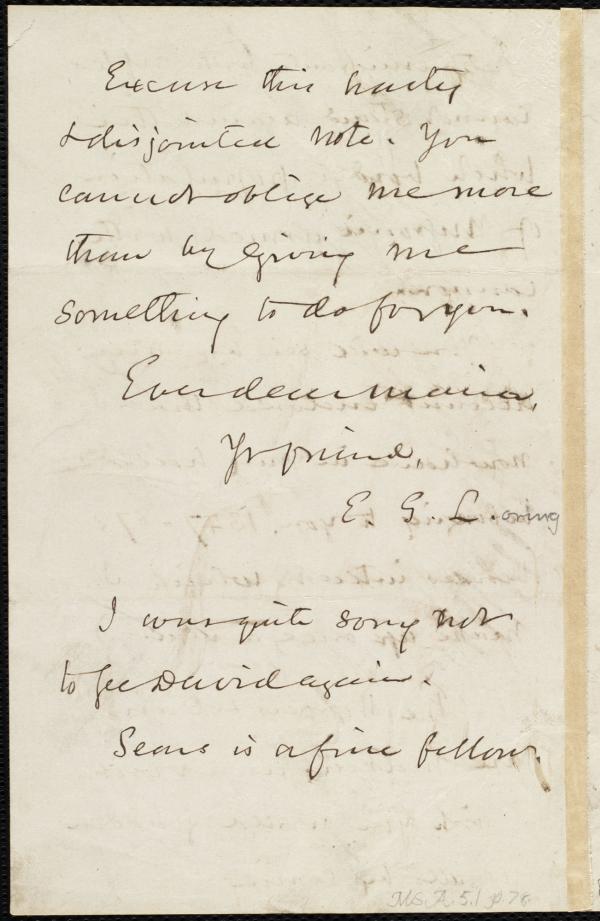 Excuse this hasty
& disjointed note. You
cannot oblige me more
than by giving me
something to do for you.
Ever dear Maria,
Yr friend,
E. G. L.oring
I was quite sorry not
to see David again.
Sears is a fine fellow.
Ms.A.5.1 p.78